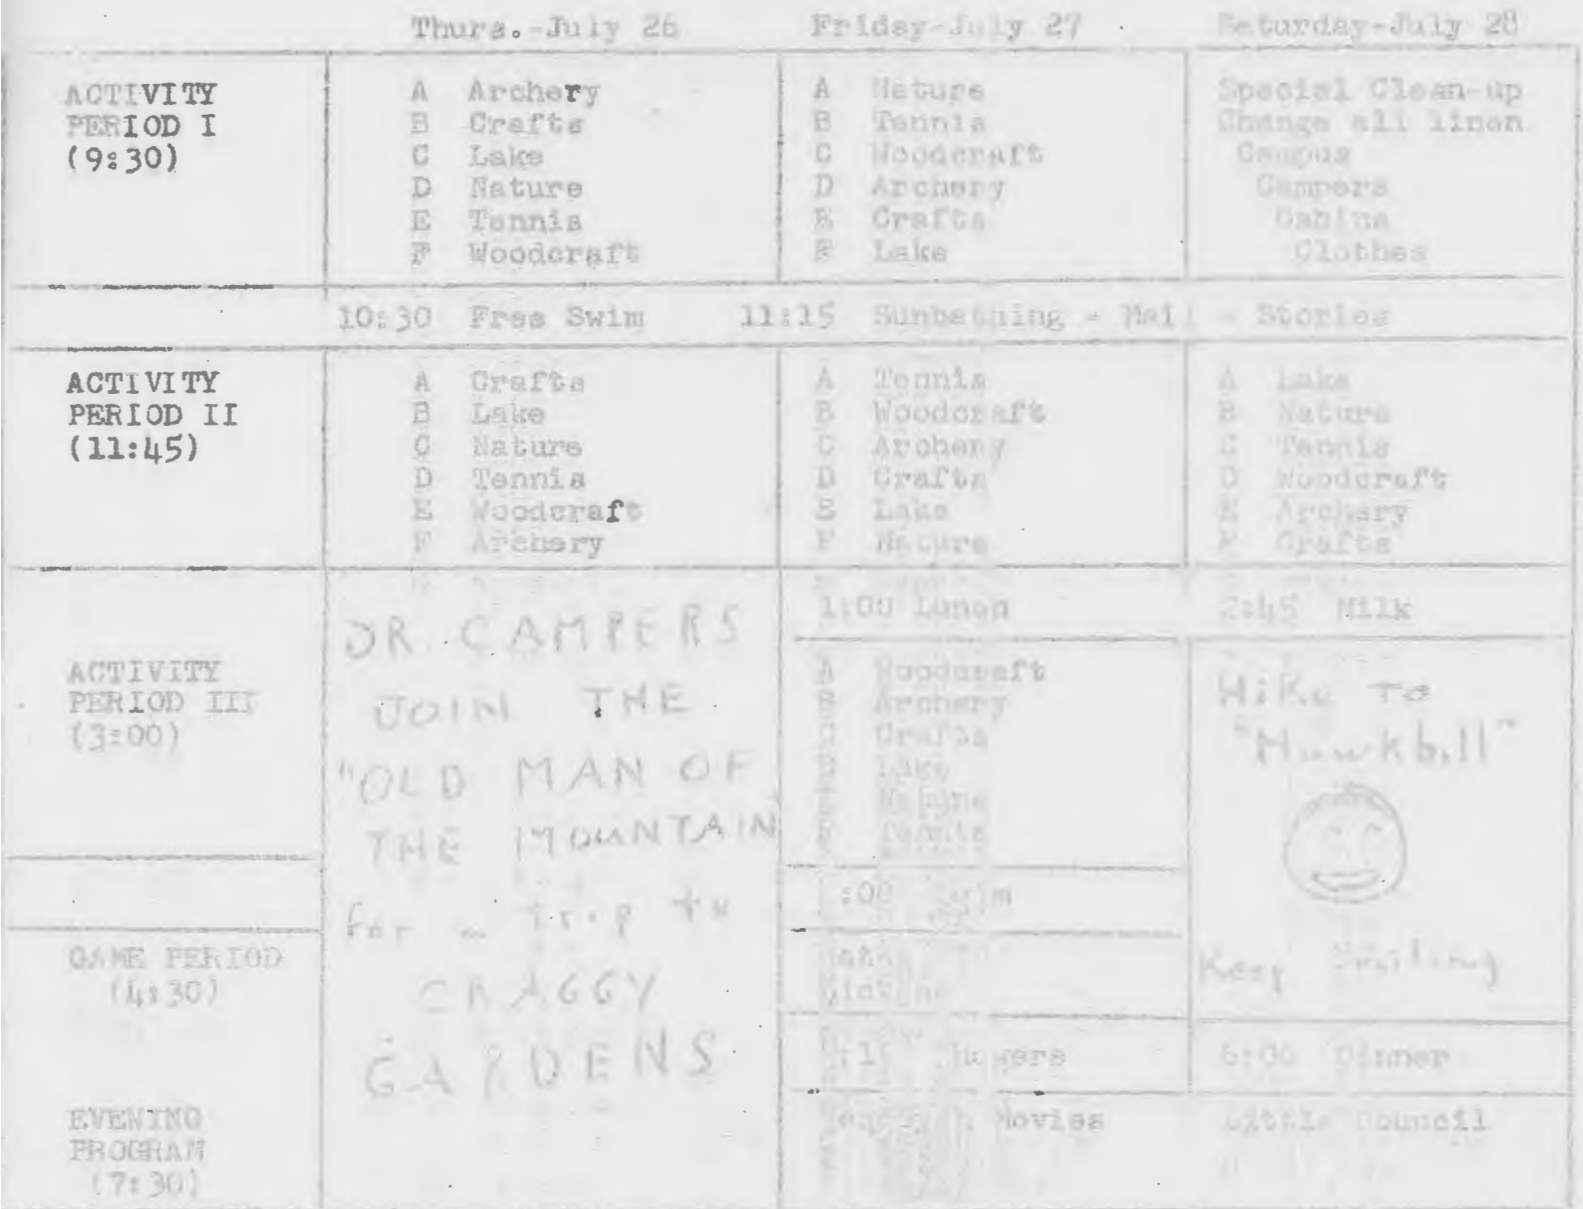 Thurs.-July 26 Friday-July 27 Saturday-July 28
ACTIVITY
PERIOD I
(9:30)
A Archery
B Crafts
C Lake
D Nature
E Tennis
F Woodcraft
A Nature
B Tennis
C Woodcraft
D Archery
E Crafts
F Lake
Special Clean-up
Change all linen
Campus
Campers
Cabins
Clothes
10:30 Free Swim 11:15 Sunbathing - Mail - Stories
ACTIVITY
PERIOD II
(11:45)
A Crafts
B Lake
C Nature
D Tennis
E Woodcraft
F Archery
A Tennis
B Woodcraft
C Archery
D Crafts
E Lake
F Nature
A Lake
B Nature
C Tennis
D Woodcraft
E Archery
F Crafts
ACTIVITY
PERIOD III
(3:00)
GAME PERIOD
(4:30)
EVENING
PROGRAM
(7:30)
JR. CAMPERS
JOIN THE
"OLD MAN OF
THE MOUNTAIN
for a trip to
CRAGGY
GARDENS
1:00 Lunch
A Woodcraft
B Archery
C Crafts
D Lake
E Nature
F Tennis
:00 Swim
Showers
Movies
2:45 Milk
Hike To
"Hawkbill"
Keep Smiling
6:00 Dinner
Little Council